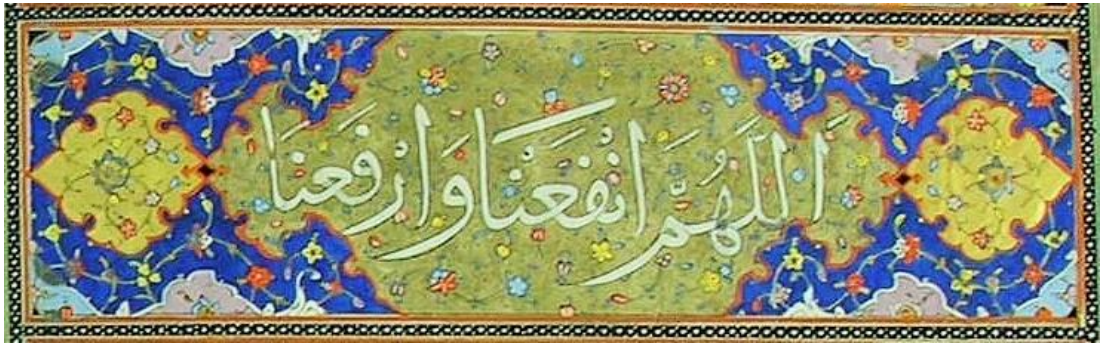 اَللّٰهُمَّ انْفَعَنَا وَارْفَعنَا